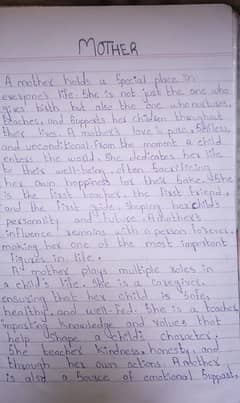 MOTHER
A mother holds a special place in
everyone's life. She is not just the one who
gives birth but also the one who nurtures,
teaches, and supports her children throughout
their lives. A mother's love is pure, selfless,
and unconditional. From the moment a child
enters the world. She dedicates her life
to their well-being, often sacrificing
her own happiness for their sake. She
is the first teacher, the first friend,
and the first shaping her child's
personality and future. A mother's
influence remains with a person forever
making her one of the most important
figures in life.
A mother plays multiple roles in
a child's life. She is a caregiver,
ensuring that her child is safe,
healthy, and well-fed. She is a teacher
imparting knowledge and values that
help shape a child's character.
She teacher kindness, honesty, and
through her own actions. A mother
is also a source of emotional support,